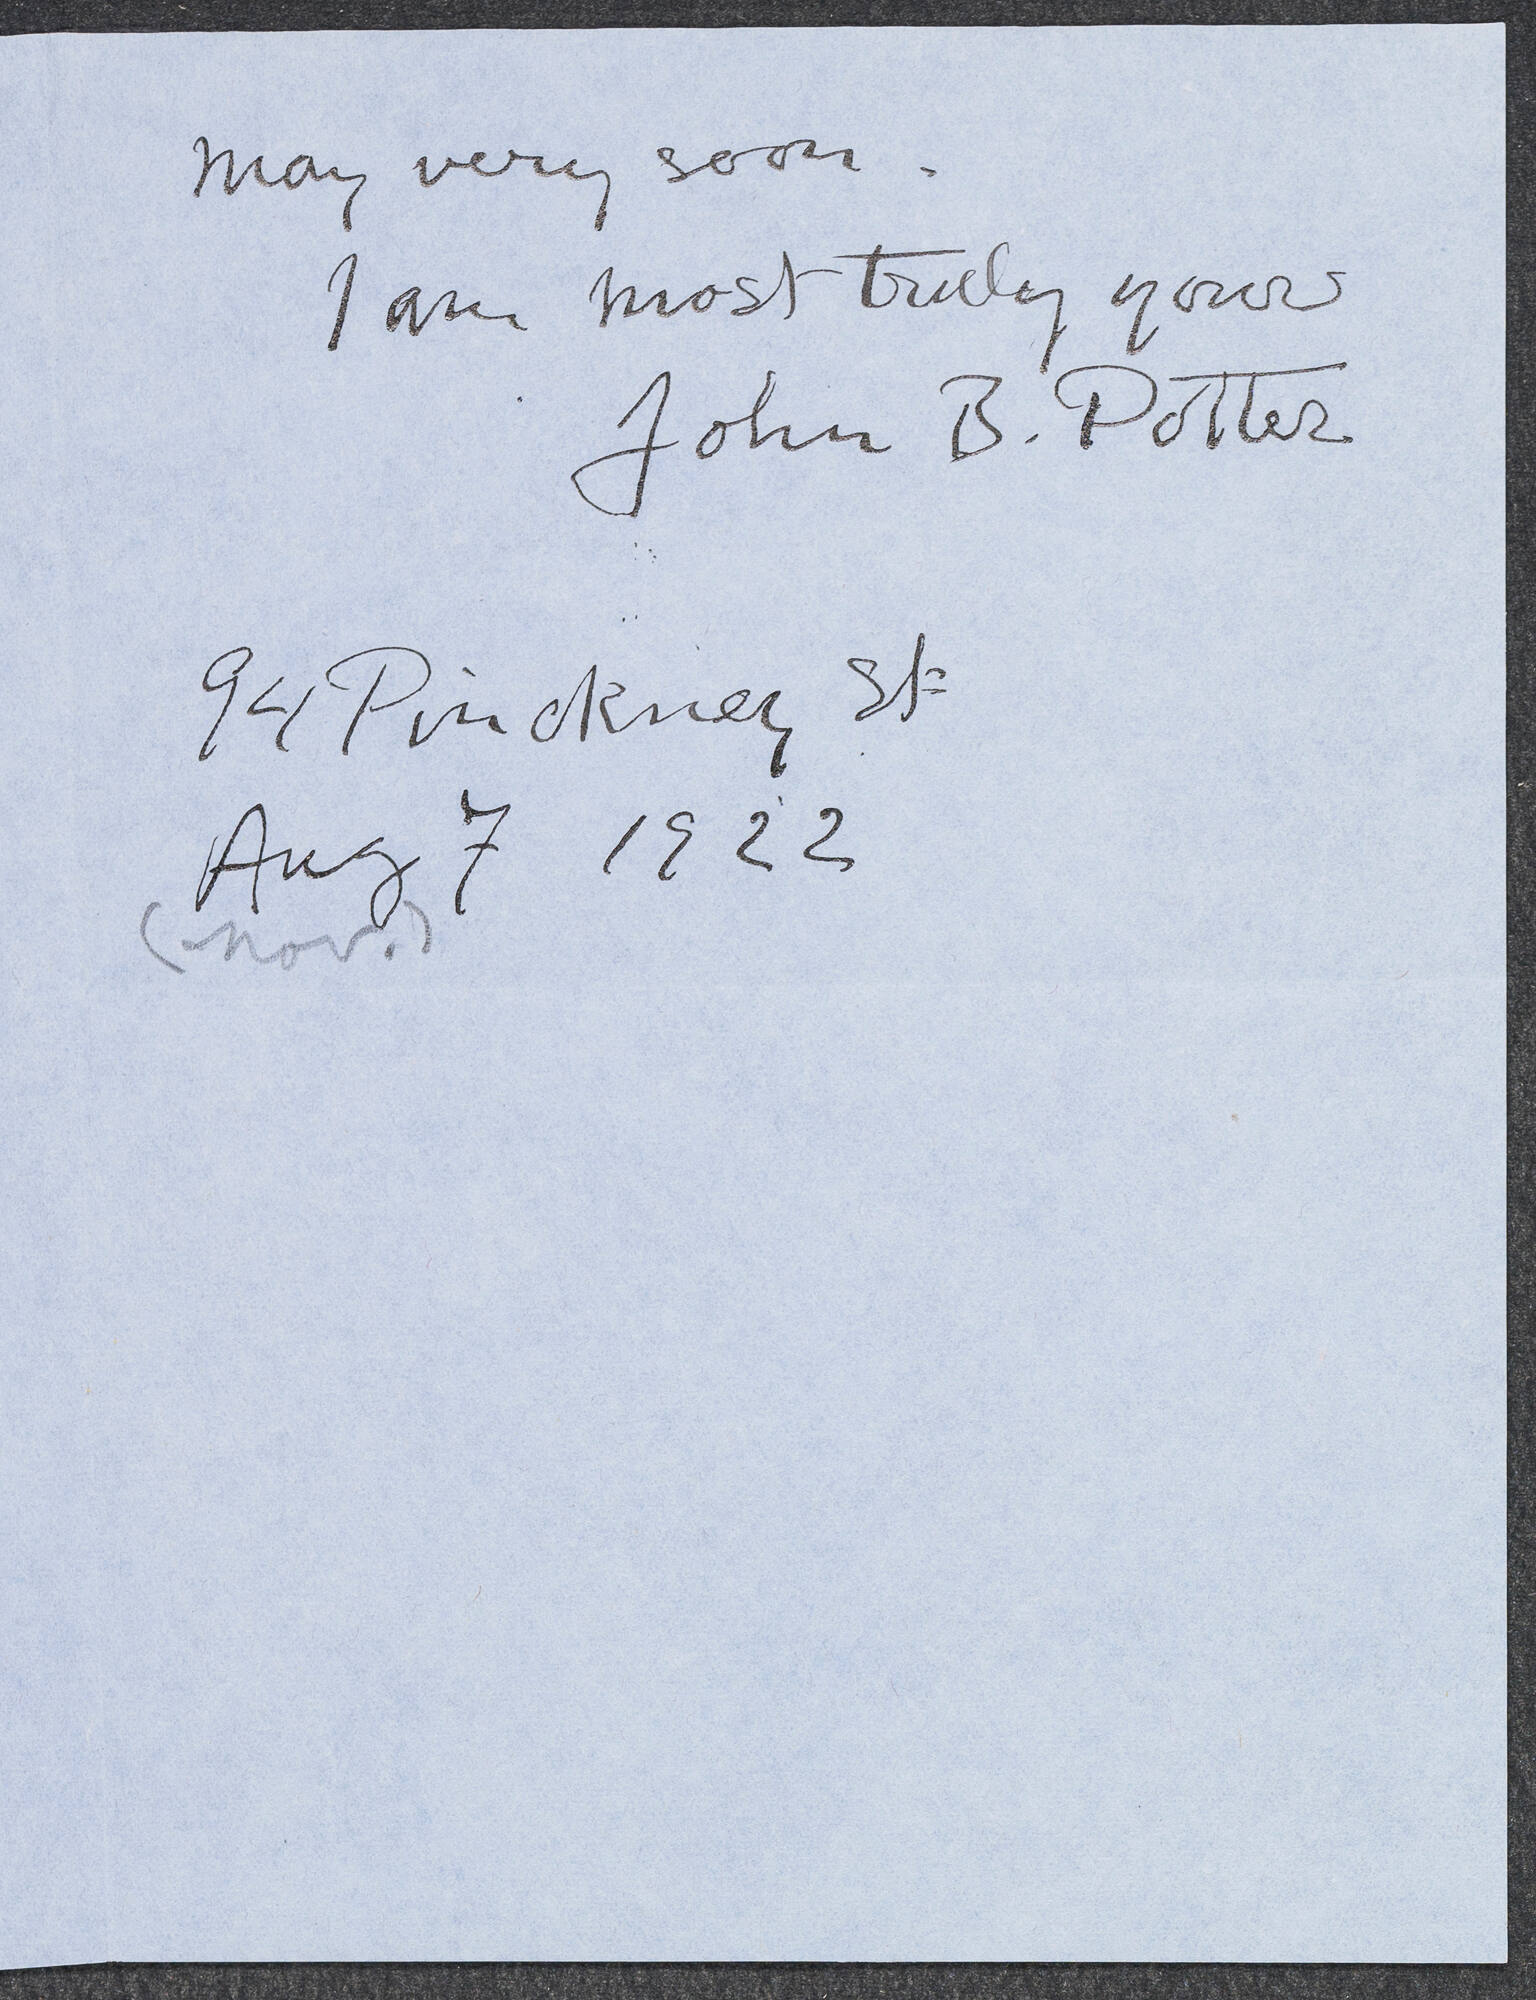 may very soon.
I am most truly yours
John B. Potter
94 Pinckney St
Aug 7 1922
(Nov.)